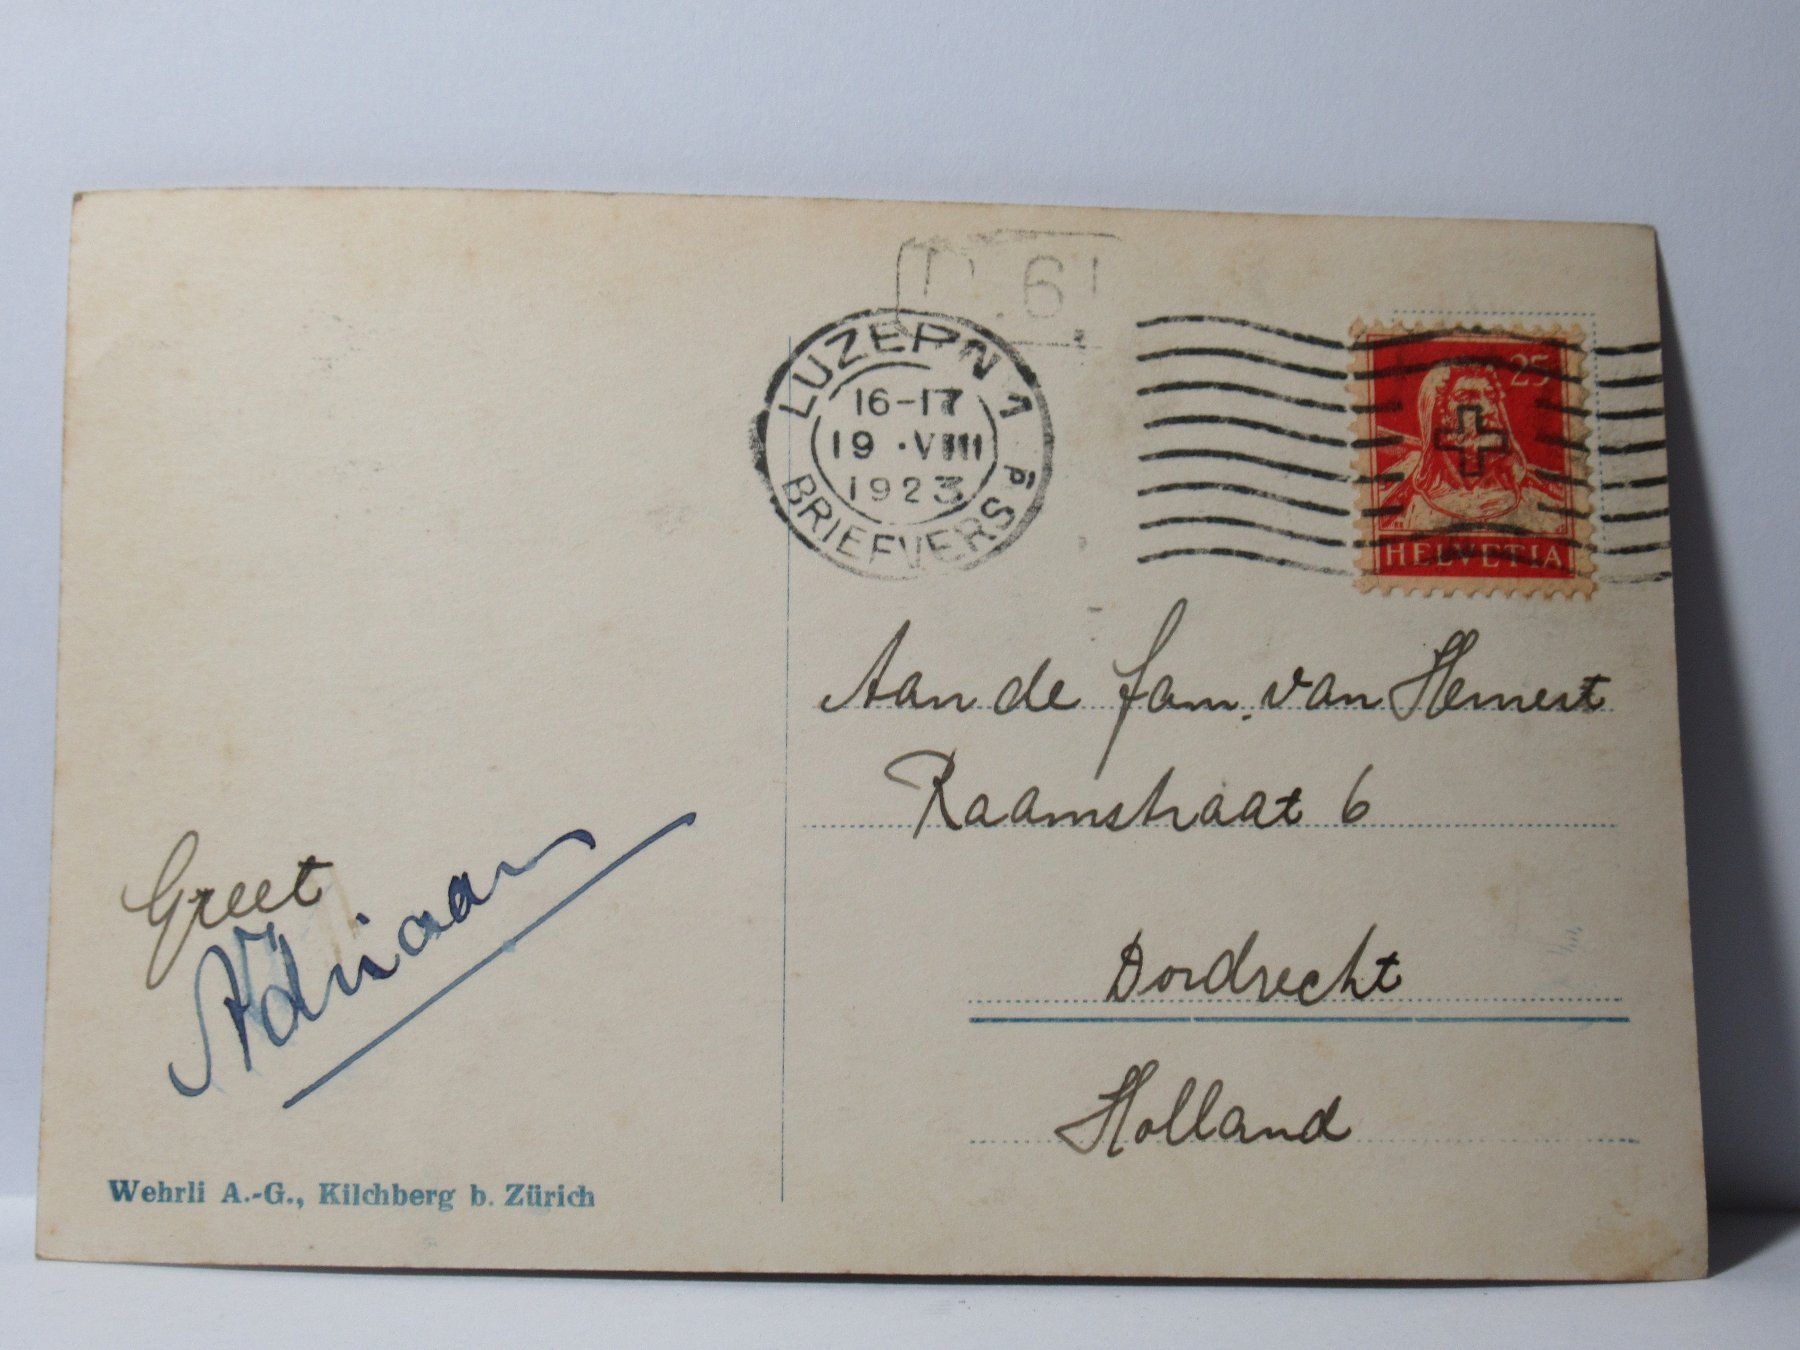 D. 6
LUZERN 1
16-17
19.VIII
1923
BRIEFVERS
25
HELVETIA
Aan de fam. van Hemert
Raamstraat 6
Dordrecht
Holland
Greet
Adriaan
Wehrli A.-G., Kilchberg b. Zürich